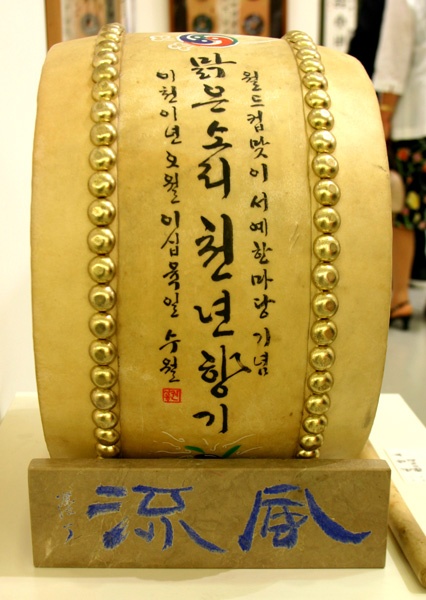 월드컵맞이서예한마당기념
맑은소리천년향기
이천이년오월이십육일 수월
風流